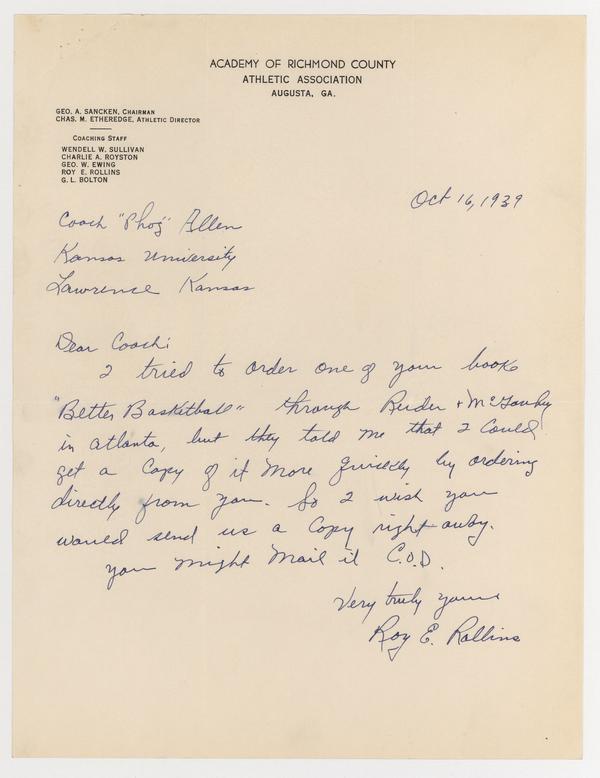 ACADEMY OF RICHMOND COUNTY
ATHLETIC ASSOCIATION
AUGUSTA, GA.
GEO. A. SANCKEN, CHAIRMAN
CHAS. M. ETHEREDGE, ATHLETIC DIRECTOR
COACHING STAFF
WENDELL W. SULLIVAN
CHARLIE A. ROYSTON
GEO. W. EWING
ROY E. ROLLINS
G. L. BOLTON
Oct 16, 1939
Coach "Phog" Allen
Kansas University
Lawrence Kansas
Dear Coach:
I tried to order one of your books
"Better Basketball" through +
in atlanta, but they told me that I Could
get a Copy of it More quickly by ordering
directly from you. So I wish you
would send us a Copy right away.
you might Mail it C.O.D.
Very truly yours
Roy E. Rollins